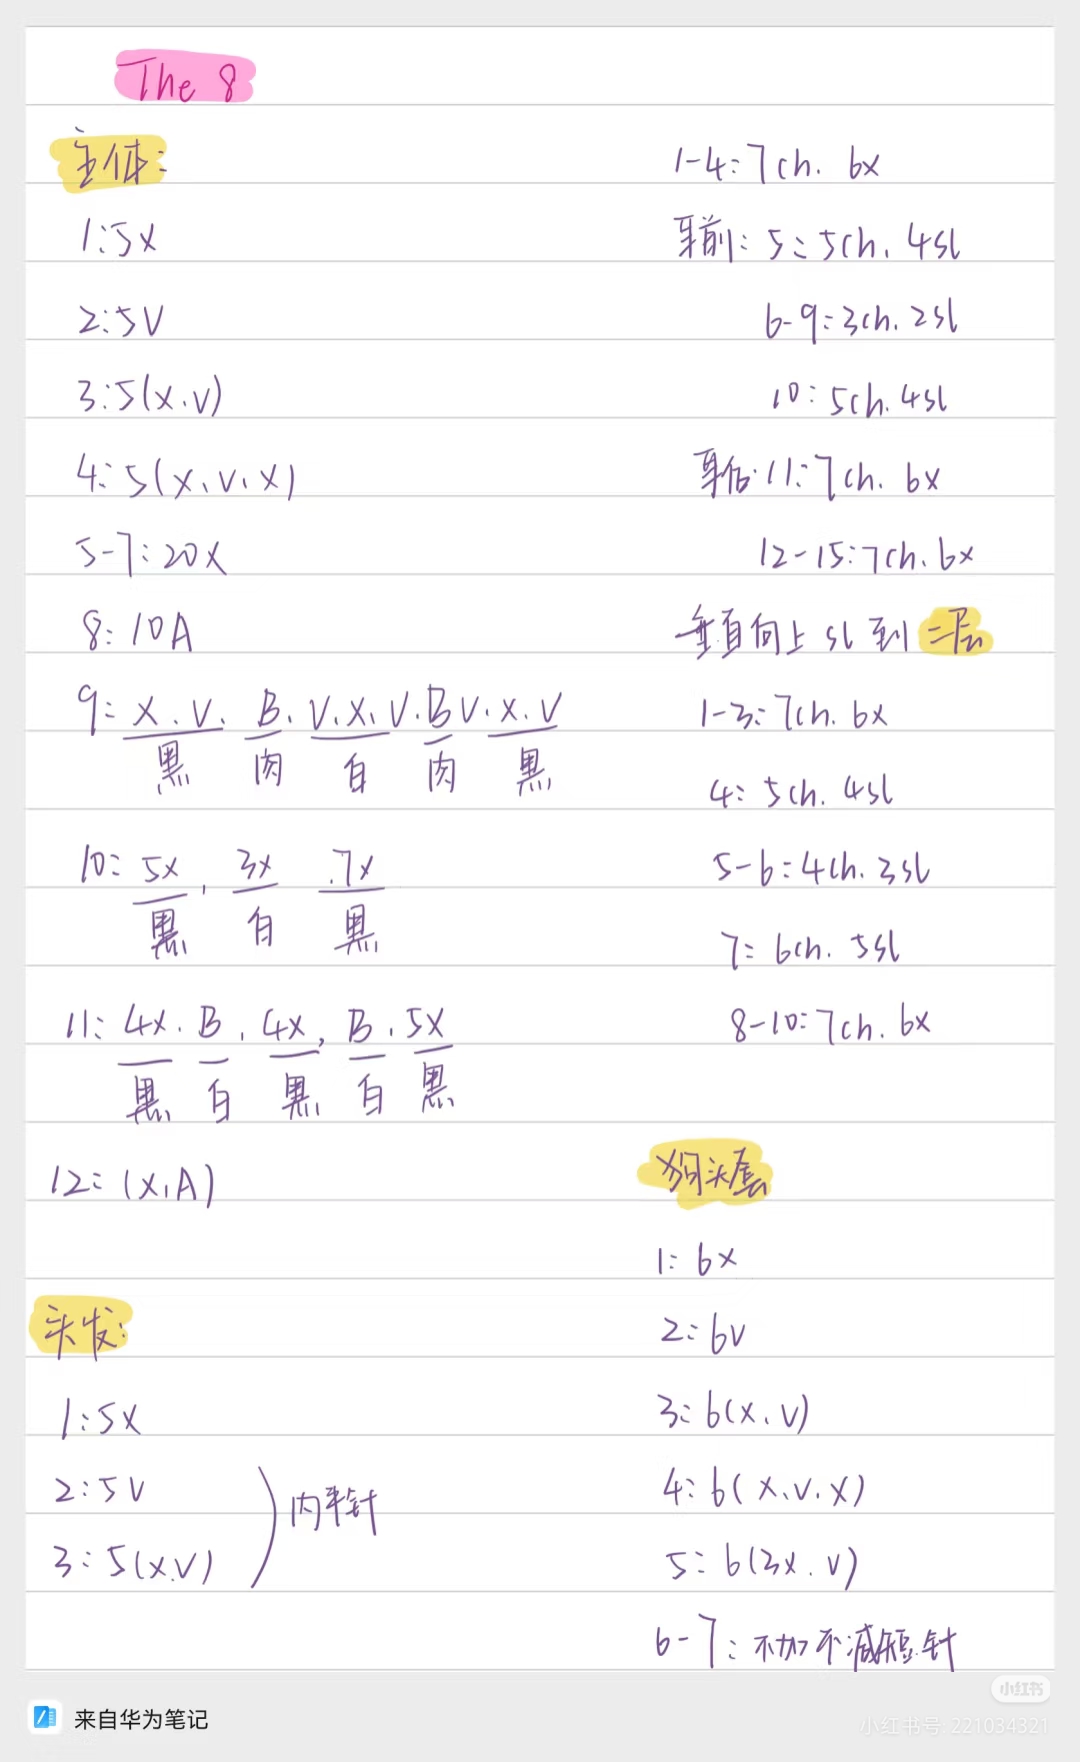 The 8
主体:
1:5X
2:5V
3:5(X.V)
4:5(X、V、X)
5-7:20X
8:10A
9:X.V. B. V.X.V. B V.X.V
黑 肉 白 肉 黑
10:5X, 3X .7X
黑 白 黑
11:4X. B, 4X, B. 5X
黑 白 黑 白 黑
12:(X,A)
头发:
1:5X
2:5V
3:5(X.V)
内半针
1-4:7ch. 6x
耳前:5:5ch. 4sl
6-9:3ch. 2sl
10:5ch. 4sl
耳后:11:7ch. 6x
12-15:7ch. 6x
垂直向上sl到二层
1-3:7ch. 6x
4:5ch. 4sl
5-6:4ch. 3sl
7:6ch. 5sl
8-10:7ch. 6x
狗头套
1:6x
2:6v
3:6(x、v)
4:6(x、v.x)
5:6(3x.v)
6-7:不加不减短针
来自华为笔记
小红书
小红书号:221034321